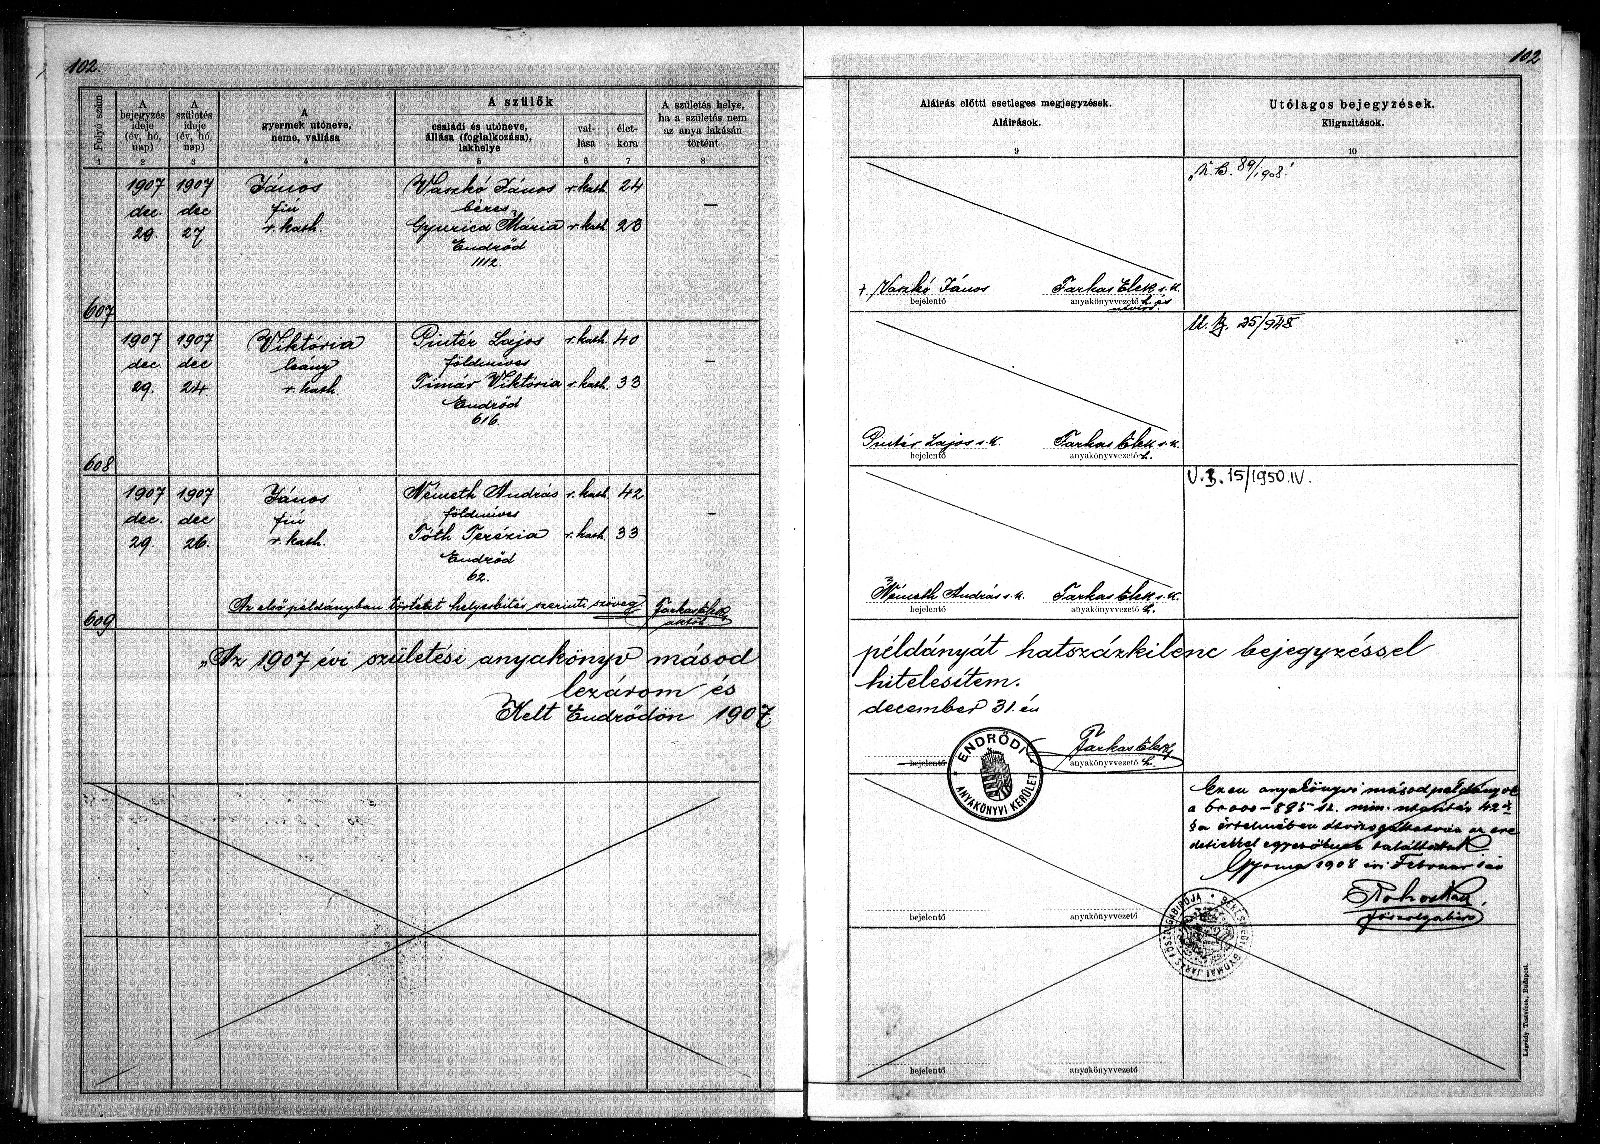 102.
102
Folyó szám
A bejegyzés ideje (év, hó, nap)
A születés ideje (év, hó, nap)
A gyermek utóneve, neme, vallása
A szülők
családi és utóneve, állása (foglalkozása), lakhelye
val- lása
élet- kora
A születés helye, ha a születés nem az anya lakásán történt
Aláírás előtti esetleges megjegyzések. Aláírások.
Utólagos bejegyzések. Kiigazítások.
1 2 3 4 5 6 7 8 9 10
1907 1907 János Vaszkó János r. kath. 24
dec. dec fiú béres —
29. 27 r. kath. Gyuricza Mária r. kath 23
Endrőd
1112.
607
U. B. 89/908
+ Vaszkó János Farkas Elek s. k.
bejelentő anyakönyvvezető h. és
névíró.
1907 1907 Viktória Pintér Lajos r. kath. 40
dec dec leány földmíves —
29. 24 r. kath. Tímár Viktória r. kath. 33
Endrőd
616.
608
U. B. 25/948
Pintér Lajos s. k. Farkas Elek s. k.
bejelentő anyakönyvvezető h.
1907 1907 János Németh András r. kath. 42
dec. dec fiú földmíves —
29. 26. r. kath. Tóth Terézia r. kath. 33
Endrőd
62.
Az első példányban történt helyesbítés szerinti szöveg. Farkas Elek
609
U. B. 15/1950. IV.
Németh András s. k. Farkas Elek s. k.
bejelentő anyakönyvvezető h.
„Az 1907 évi születési anyakönyv másod példányát hatszázkilenc bejegyzéssel
lezárom és hitelesítem.
Kelt Endrődön 1907 december 31. én
Farkas Elek
bejelentő anyakönyvvezető h.
ENDRŐDI ANYAKÖNYVI KERÜLET
Ezen anyakönyvi másodpéldányt
a 60000–895 sz. min. utasítás 42 §
a értelmében átvizsgáltatván az ere
detiekkel egyezőnek találtatott
Gyoma 1908 évi Február
főszolgabíró
BÉKÉSMEGYE GYOMAI JÁRÁS FŐSZOLGABIRÓJA
bejelentő anyakönyvvezető
bejelentő anyakönyvvezető
Légrády Testvérek, Budapest.